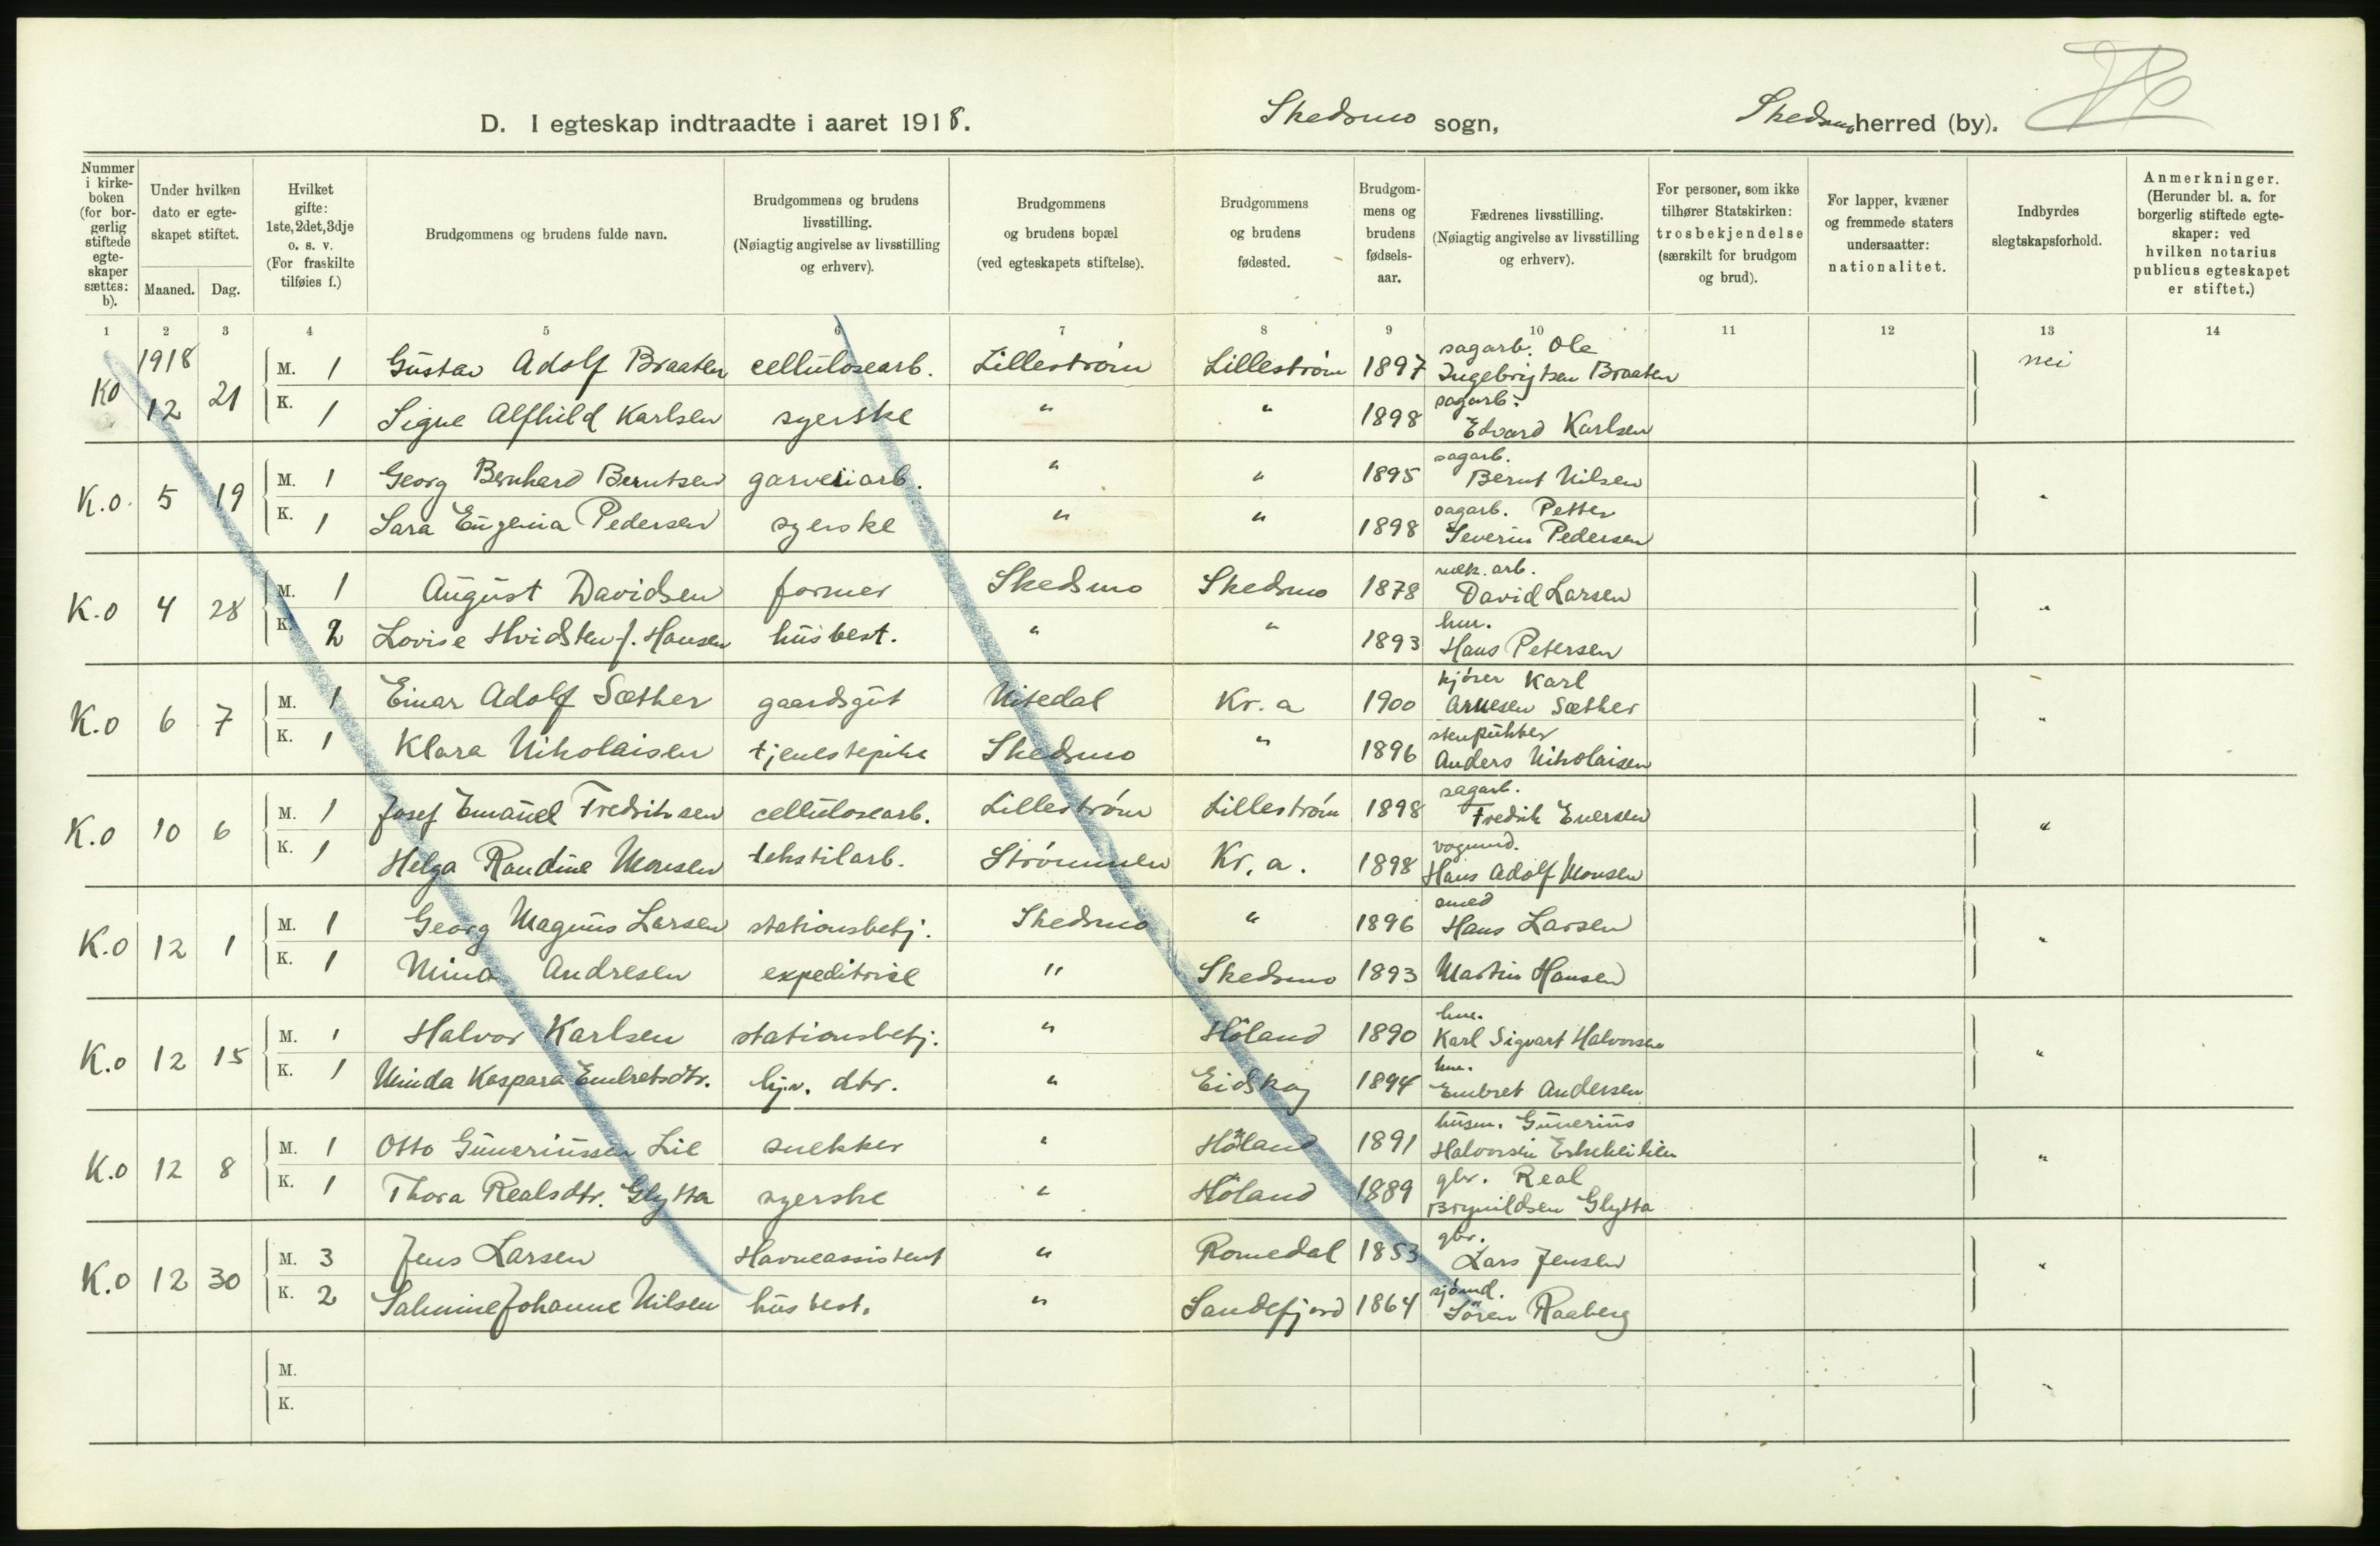 D. I egteskap indtraadte i aaret 1918. Skedsmo sogn, Skedsmo herred (by).
Nummer i kirkeboken (for borgerlig stiftede egteskaper sættes: b).
Under hvilken dato er egteskapet stiftet.
Maaned. Dag.
Hvilket gifte: 1ste, 2det, 3dje o. s. v. (For fraskilte tilføies f.)
Brudgommens og brudens fulde navn.
Brudgommens og brudens livsstilling. (Nøiagtig angivelse av livsstilling og erhverv).
Brudgommens og brudens bopæl (ved egteskapets stiftelse).
Brudgommens og brudens fødested.
Brudgommens og brudens fødselsaar.
Fædrenes livsstilling. (Nøiagtig angivelse av livsstilling og erhverv).
For personer, som ikke tilhører Statskirken: trosbekjendelse (særskilt for brudgom og brud).
For lapper, kvæner og fremmede staters undersaatter: nationalitet.
Indbyrdes slegtskapsforhold.
Anmerkninger. (Herunder bl. a. for borgerlig stiftede egteskaper: ved hvilken notarius publicus egteskapet er stiftet.)
1 2 3 4 5 6 7 8 9 10 11 12 13 14
1918
K.O 12 21 M. 1 Gustav Adolf Braaten cellulosearb. Lillestrøm Lillestrøm 1897 sagarb. Ole Ingebrigtsen Braaten nei
K. 1 Signe Alfhild Karlsen syerske " " 1898 sagarb. Edvard Karlsen
K.O. 5 19 M. 1 Georg Bernhard Berntsen garveriarb. " " 1895 sagarb. Bernt Nilsen "
K. 1 Sara Eugenia Pedersen syerske " " 1898 sagarb. Petter Severin Pedersen
K.O 4 28 M. 1 August Davidsen former Skedsmo Skedsmo 1878 mek. arb. David Larsen "
K. 2 Lovise Hvidsten f. Hansen husbest. " " 1893 hm. Hans Petersen
K.O 6 7 M. 1 Einar Adolf Sæther gaardsgut Nitedal Kr.a 1900 kjører Karl Arnesen Sæther "
K. 1 Klara Nikolaisen tjenestepike Skedsmo " 1896 stenpukker Anders Nikolaisen
K.O 10 6 M. 1 Josef Emanuel Fredriksen cellulosearb. Lillestrøm Lillestrøm 1898 sagarb. Fredrik Evensen "
K. 1 Helga Randine Monsen tekstilarb. Strømmen Kr.a. 1898 vognmd. Hans Adolf Monsen
K.O 12 1 M. 1 Georg Magnus Larsen stationsbetj. Skedsmo " 1896 smed Hans Larsen "
K. 1 Mina Andresen expeditrise " Skedsmo 1893 Martin Hansen
K.O 12 15 M. 1 Halvor Karlsen stationsbetj. " Høland 1890 hm. Karl Sigvart Halvorsen "
K. 1 Minda Kaspara Embretsdtr. hjv. dtr. " Eidskog 1894 hm. Embret Andersen
K.O 12 8 M. 1 Otto Guneriussen Lie snekker " Høland 1891 husm. Gunerius Halvorsen "
K. 1 Thora Realsdtr. Glytta syerske " Høland 1889 gbr. Real Brynildsen Glytta
K.O 12 30 M. 3 Jens Larsen Havneassistent " Romedal 1853 gbr. Lars Jensen "
K. 2 Salmine Johanne Nilsen husbest. " Sandefjord 1864 sjømd. Søren Raaberg
M. "
K.